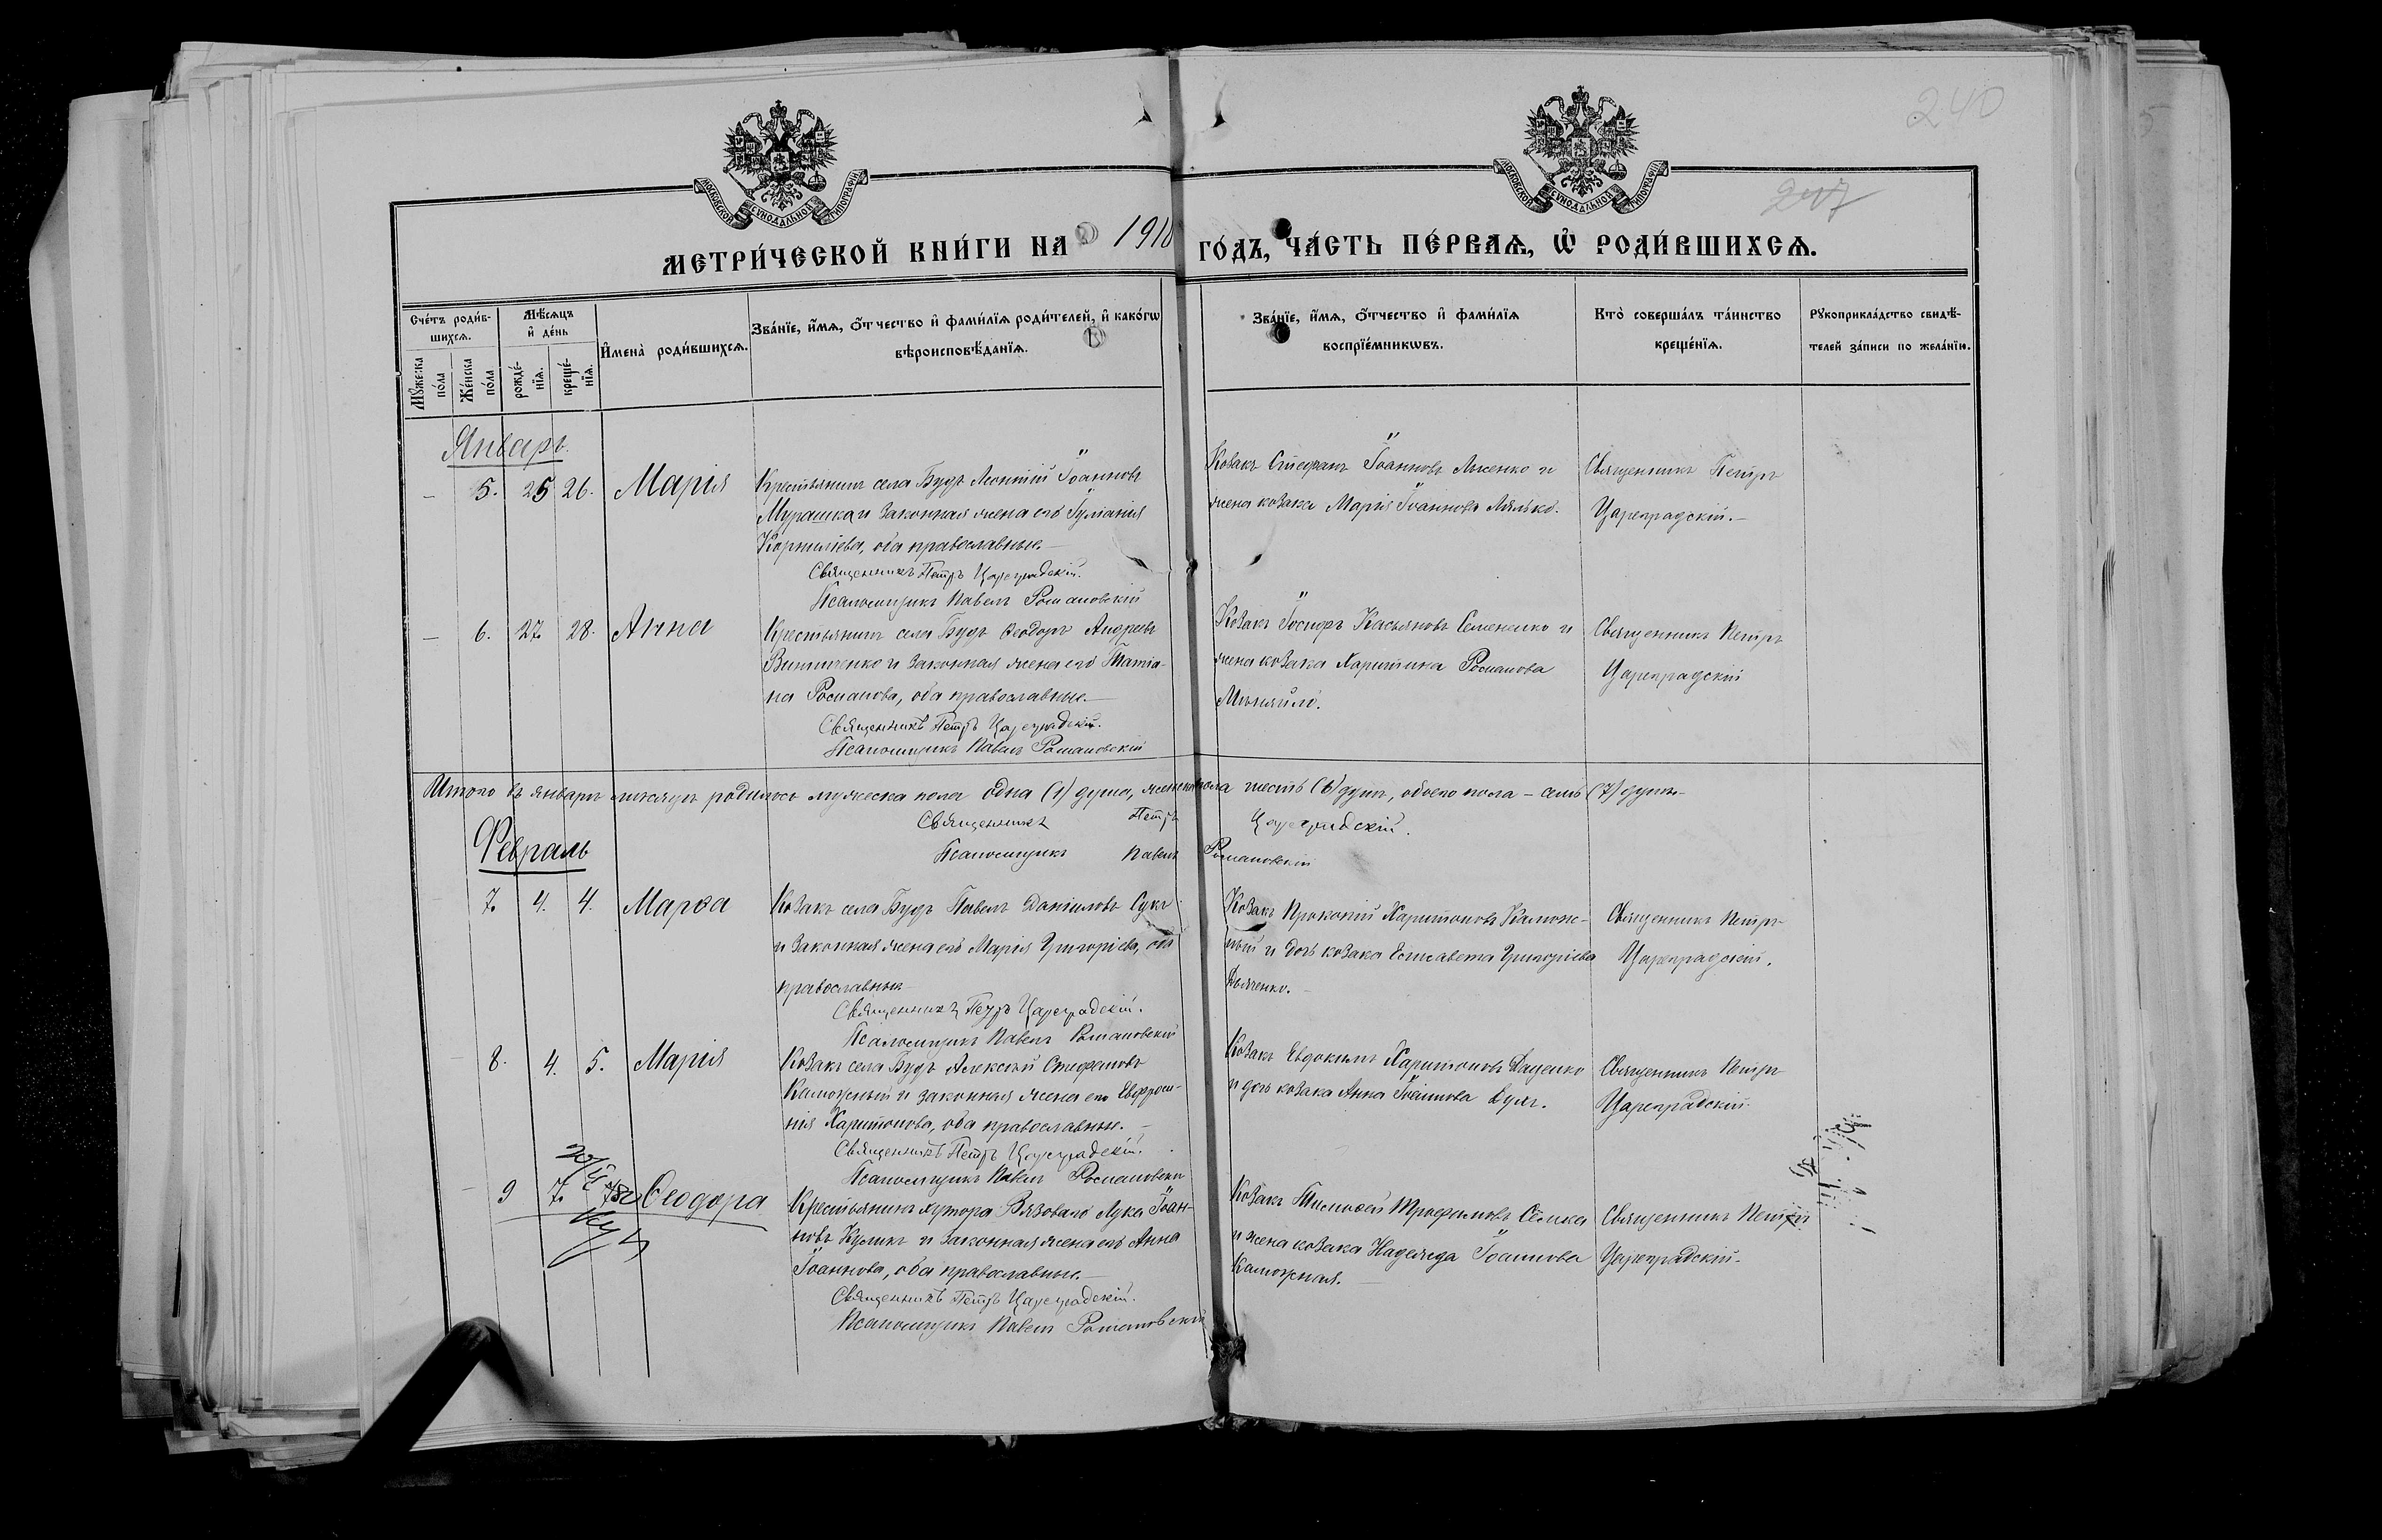 240
247
МОСКОВСКОЙ СѴНОДАЛЬНОЙ ТИПОГРАФІИ
МОСКОВСКОЙ СѴНОДАЛЬНОЙ ТИПОГРАФІИ
МЕТРИ́ЧЕСКОЙ КНИ́ГИ НА 1910 ГО́ДЪ, ЧА́СТЬ ПЕ́РВАѦ, Ѽ РОДИ́ВШИХСѦ.
Сче́тъ роди́в-
шихсѧ.
Мꙋжеска по́ла
Же́нска по́ла
Мѣ́сѧцъ и҆ де́нь
рожде́-нїѧ.
креще́-нїѧ.
И҆мена̀ роди́вшихсѧ.
Зва́нїе, и҆́мѧ, ѻ҆́тчество и҆ фами́лїѧ роди́телей, и҆ како́гѡ
вѣроисповѣ́данїѧ.
Зва́нїе, и҆́мѧ, ѻ҆́тчество и҆ фами́лїѧ
воспрїе́мникѡвъ.
Кто̀ соверша́лъ та́инство
креще́нїѧ.
Рꙋкоприкла́дство свидѣ́-
телей за́писи по жела́нїю.
Январь.
– 5. 25 26. Марія
Крестьянинъ села Будъ Леонтій Іоанновъ
Мурашка и законная жена его Іуліанія
Корниліева, оба православные.–
Священникъ Петръ Цареградскій.
Псаломщикъ Павелъ Романовскій
Козакъ Стефанъ Іоанновъ и
жена козака Марія Іоаннова
Священникъ Петръ
Цареградскій.–
– 6. 27. 28. Анна
Крестьянинъ села Будъ Ѳеодоръ Андреевъ
Винниченко и законная жена его Татіа-
на Романова, оба православные.–
Священникъ Петръ Цареградскій.
Псаломщикъ Павелъ Романовскій
Козакъ Іосифъ Касьяновъ Семененко и
жена козака Харитина Романова
Священникъ Петръ
Цареградскій
Итого въ январѣ мѣсяцѣ родилось мужеска пола одна (1) душа, женска пола шесть (6) душъ, обоего пола – семь (7) душъ.–
Священникъ Петръ Цареградскій.
Псаломщикъ Павелъ Романовскій
Февраль
7. 4. 4. Марѳа
Козакъ села Будъ Павелъ Даніиловъ Сукъ
и законная жена его Марія Григоріева, оба
православные–
Священникъ Петръ Цареградскій.
Псаломщикъ Павелъ Романовскій
Козакъ Прокопій Харитоновъ Камож-
ный и дочь козака Елисавета Григоріева
Дьяченко.
Священникъ Петръ
Цареградскій.
– 8. 4. 5. Марія
Козакъ села Будъ Алексѣй Стефановъ
Каможный и законная жена его Евфроси-
нія Харитонова, оба православные.–
Священникъ Петръ Цареградскій.
Псаломщикъ Павелъ Романовскій
Козакъ Евдокимъ Харитоновъ Даценко
и дочь козака Анна
Священникъ Петръ
Цареградскій.
– 9 7. Ѳеодора
Крестьянинъ хутора Вязоваго Лука Іоан-
новъ Куликъ и законная жена его Анна
Іоаннова, оба православные.–
Священникъ Петръ Цареградскій.
Псаломщикъ Павелъ Романовскій
Козакъ Тимоѳей Трофимовъ
и жена козака Надежда Іоаннова
Каможная.–
Священникъ Петръ
Цареградскій.